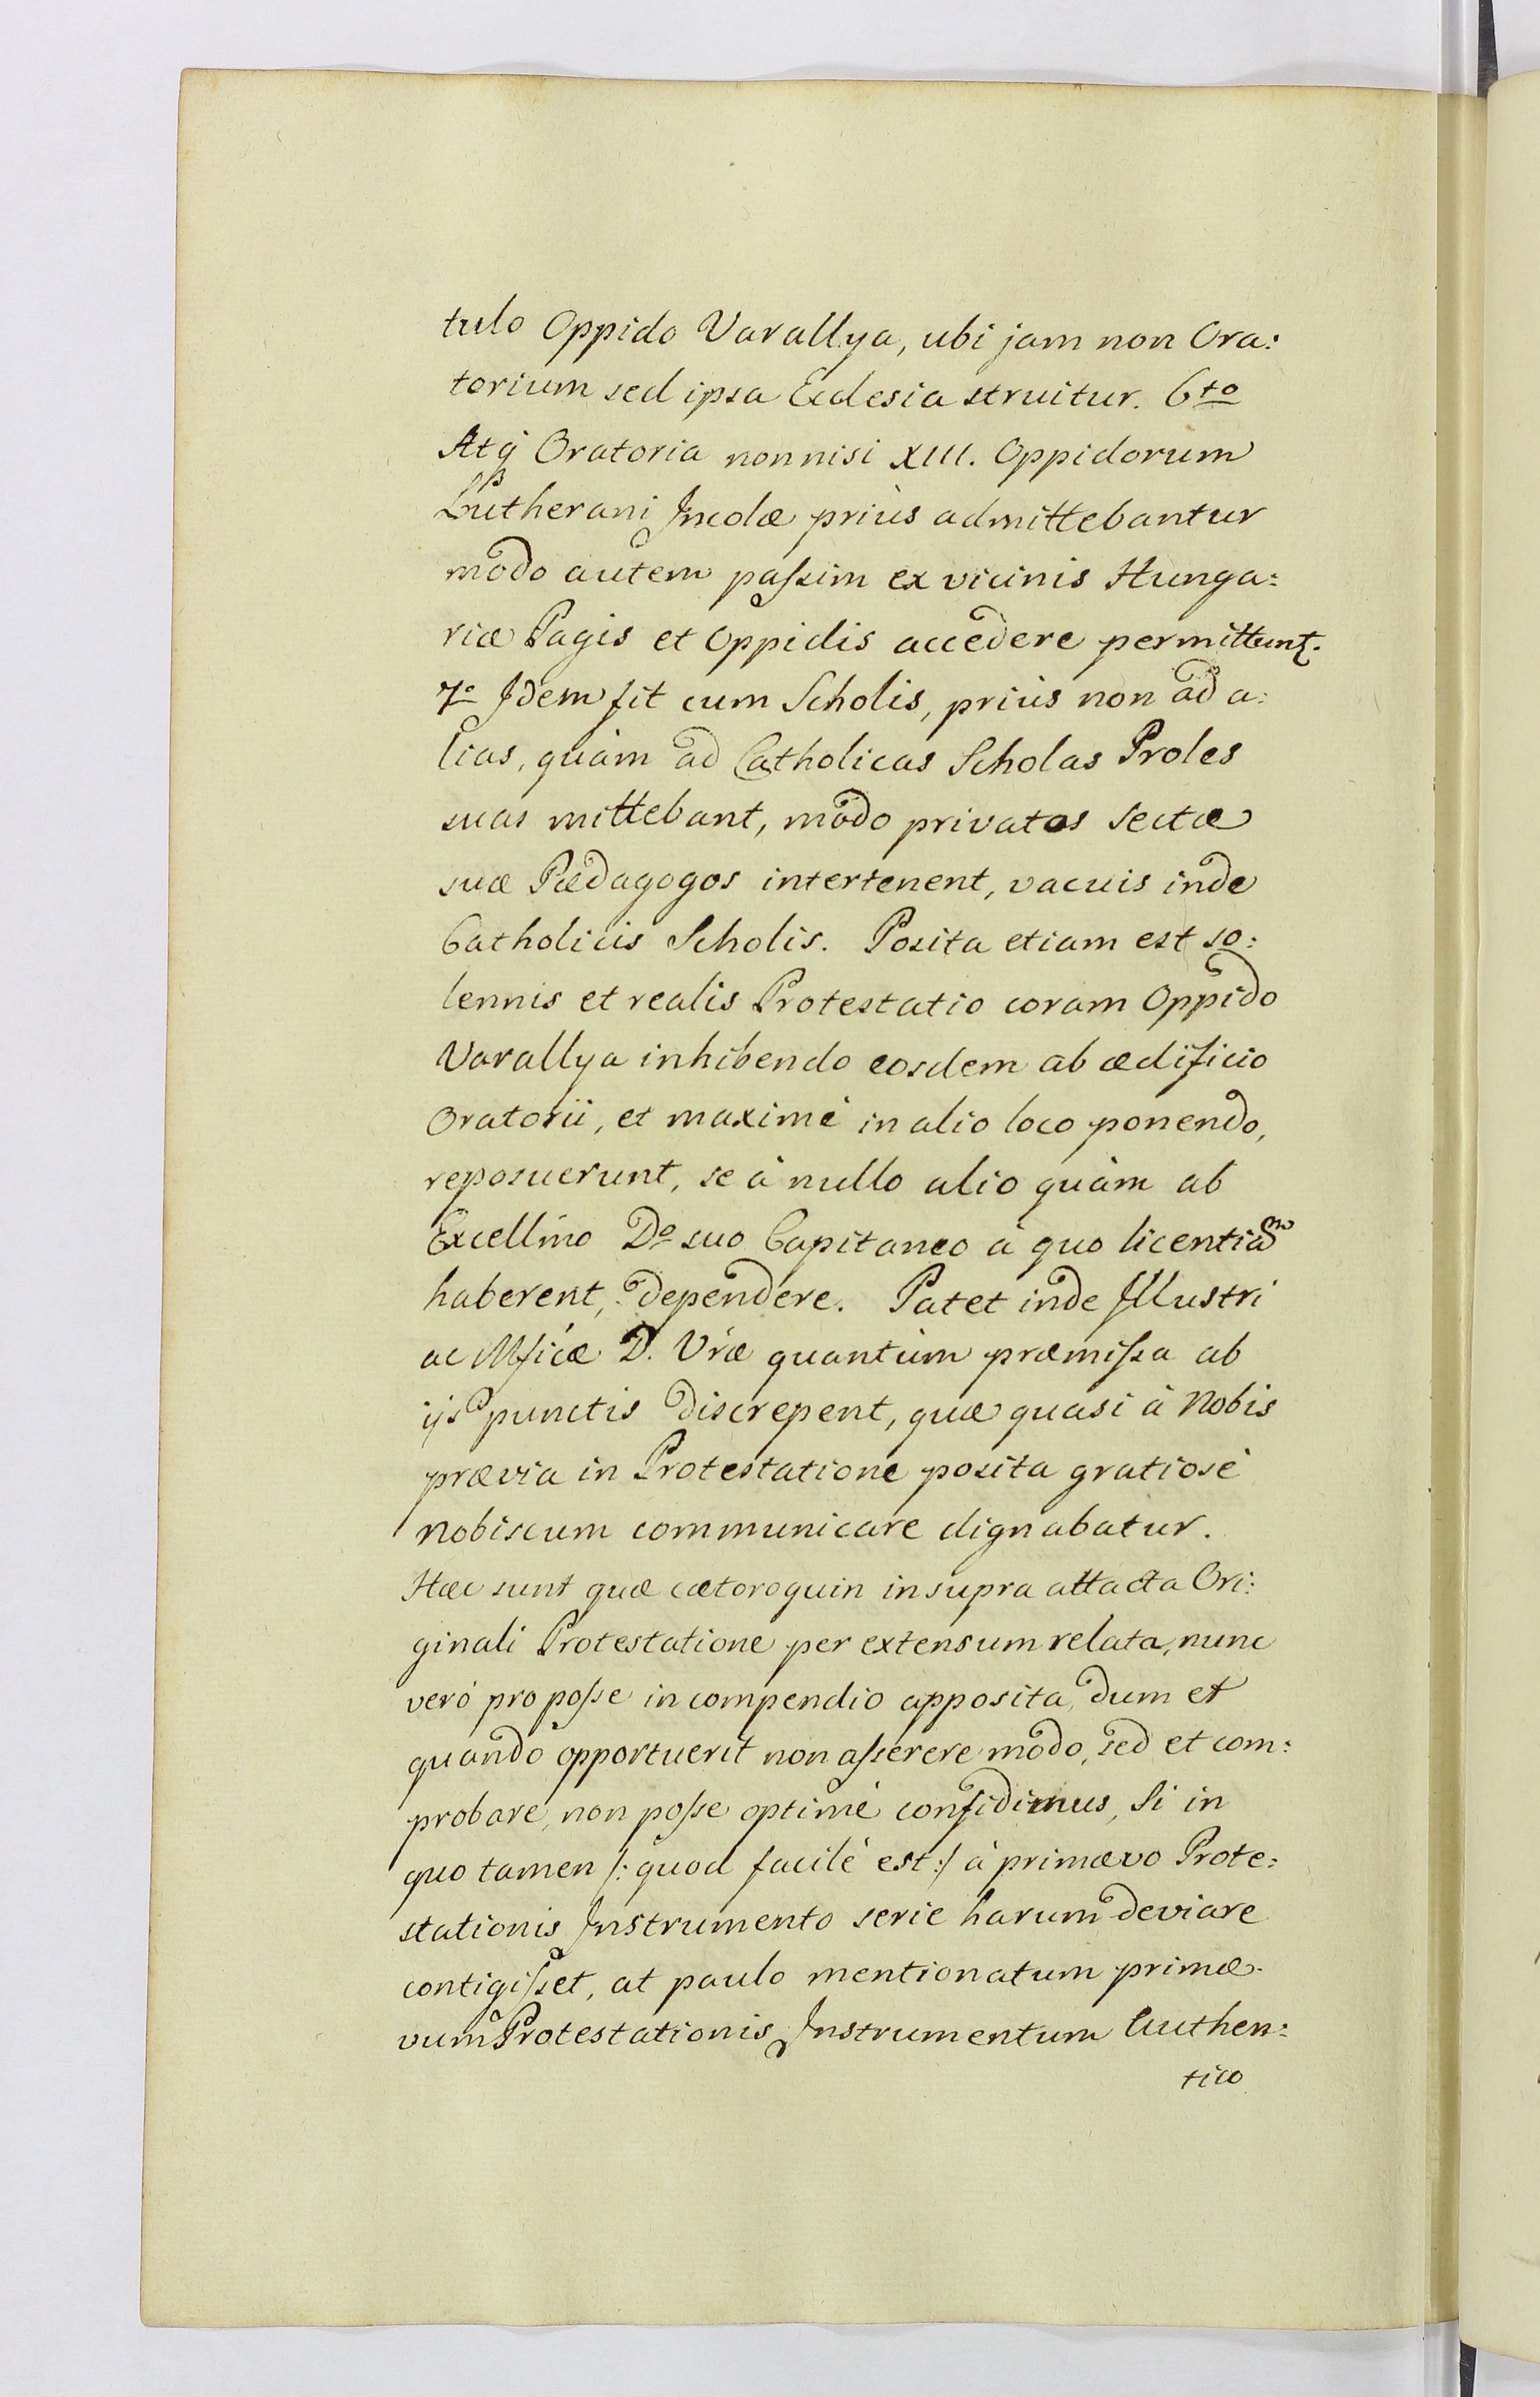 tulo Oppido Varallya, ubi jam non Ora:
torium sed ipsa Ecclesia struitur. 6to
Atq̃ Oratoria nonnisi XIII. Oppidorum
Lutherani Incolæ priùs admittebantur
modo autem paſsim ex vicinis Hunga:
riæ Pagis et Oppidis accedere permittunt.
7o Idem fit cum Scholis, priùs non ad a:
lias, quàm ad Catholicas Scholas Proles
suas mittebant, modo privatos sectæ
suæ Pædagogos intertenent, vacuis inde
Catholicis Scholis. Posita etiam est so:
lennis et realis Protestatio coram Oppido
Varallya inhibendo eosdem ab ædificio
Oratorii, et maximè in alio loco ponendo,
reposuerunt, se à nullo alio quàm ab
Excellmo Do suo Capitaneo à quo licentiam
haberent, dependere. Patet inde Illustri
ac Mficæ D. Vræ quantùm præmiſsa ab
ijs punctis discrepent, quæ quasi à Nobis
prævia in Protestatione posita gratiosè
nobiscum communicare dignabatur.
Hæc sunt quæ cætoroquin in supra attacta Ori:
ginali Protestatione per extensum relata, nunc
verò pro poſse in compendio apposita, dum et
quando opportuerit non aſserere modo, sed et com:
probare, non poſse optimè confidimus, Si in
quo tamen /: quod facilè est :/ à primævo Prote:
stationis Instrumento serie harum deviare
contigiſset, at paulo mentionatum primæ-
vum Protestationis Instrumentum Authen:
tico